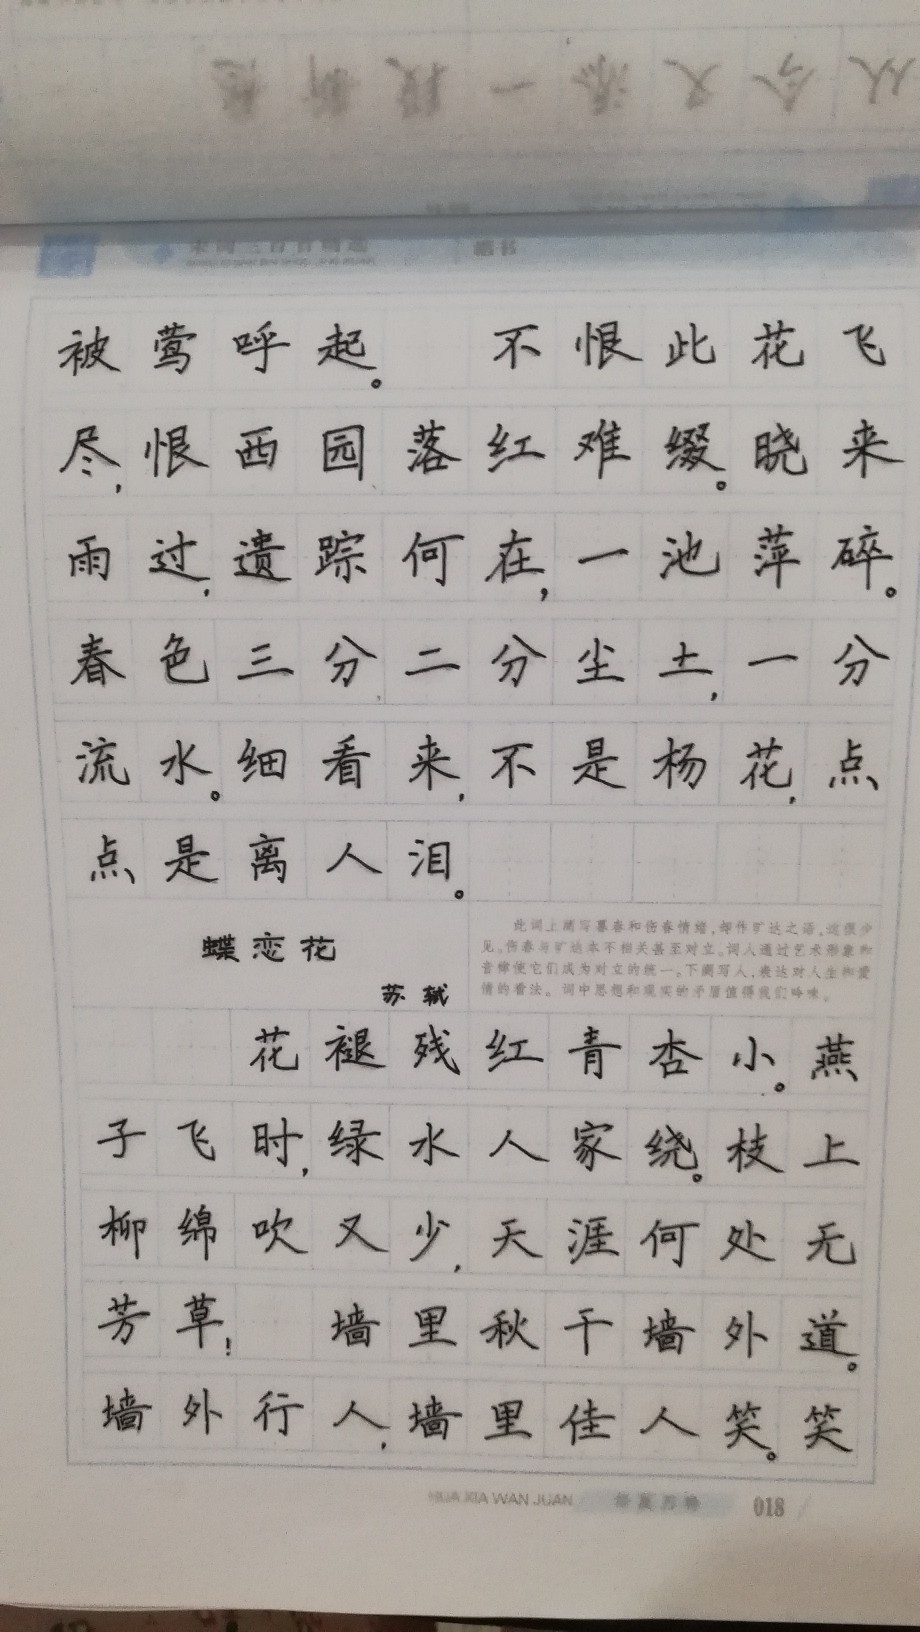 从今又添一段新愁
楷书
被莺呼起。 不恨此花飞
尽,恨西园落红难缀。晓来
雨过,遗踪何在,一池萍碎。
春色三分,二分尘土,一分
流水。细看来,不是杨花,点
点是离人泪。
此词上阕写暮春和伤春情绪,却作旷达之语,这很少
见。伤春与旷达本不相关甚至对立。词人通过艺术形象和
音律使它们成为对立的统一。下阕写人,表达对人生和爱
情的看法。词中思想和现实的矛盾值得我们吟味。
蝶恋花
苏轼
花褪残红青杏小。燕
子飞时,绿水人家绕。枝上
柳绵吹又少,天涯何处无
芳草! 墙里秋千墙外道。
墙外行人,墙里佳人笑。笑
HUA XIA WAN JUAN
018